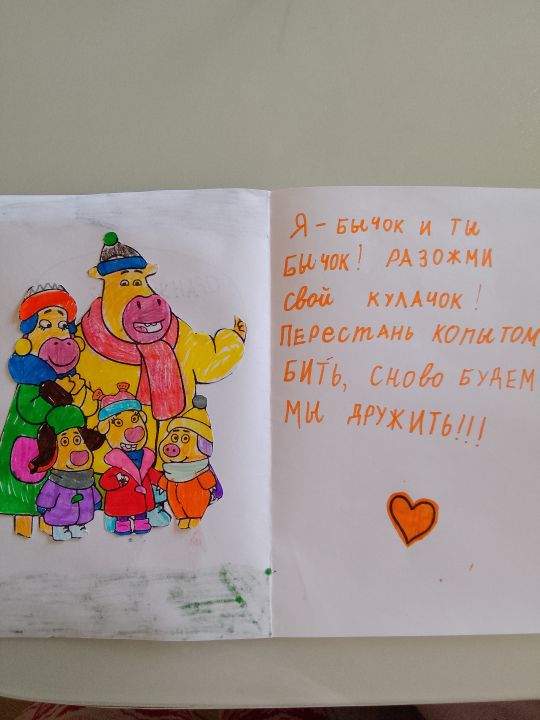 Я - БЫЧОК И ТЫ
БЫЧОК! РАЗОЖМИ
СВОЙ КУЛАЧОК!
ПЕРЕСТАНЬ КОПЫТОМ
БИТЬ, СНОВО БУДЕМ
МЫ ДРУЖИТЬ!!!